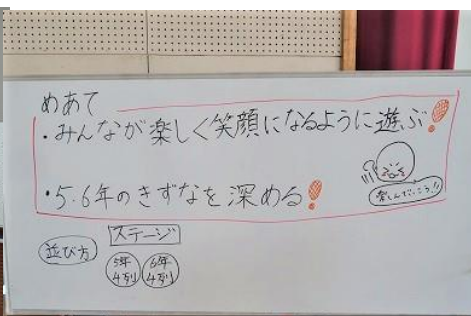 めあて
・みんなが楽しく笑顔になるように遊ぶ!
・5.6年のきずなを深める!
楽しんでいこう!!
並び方
ステージ
5年 6年
4列 4列